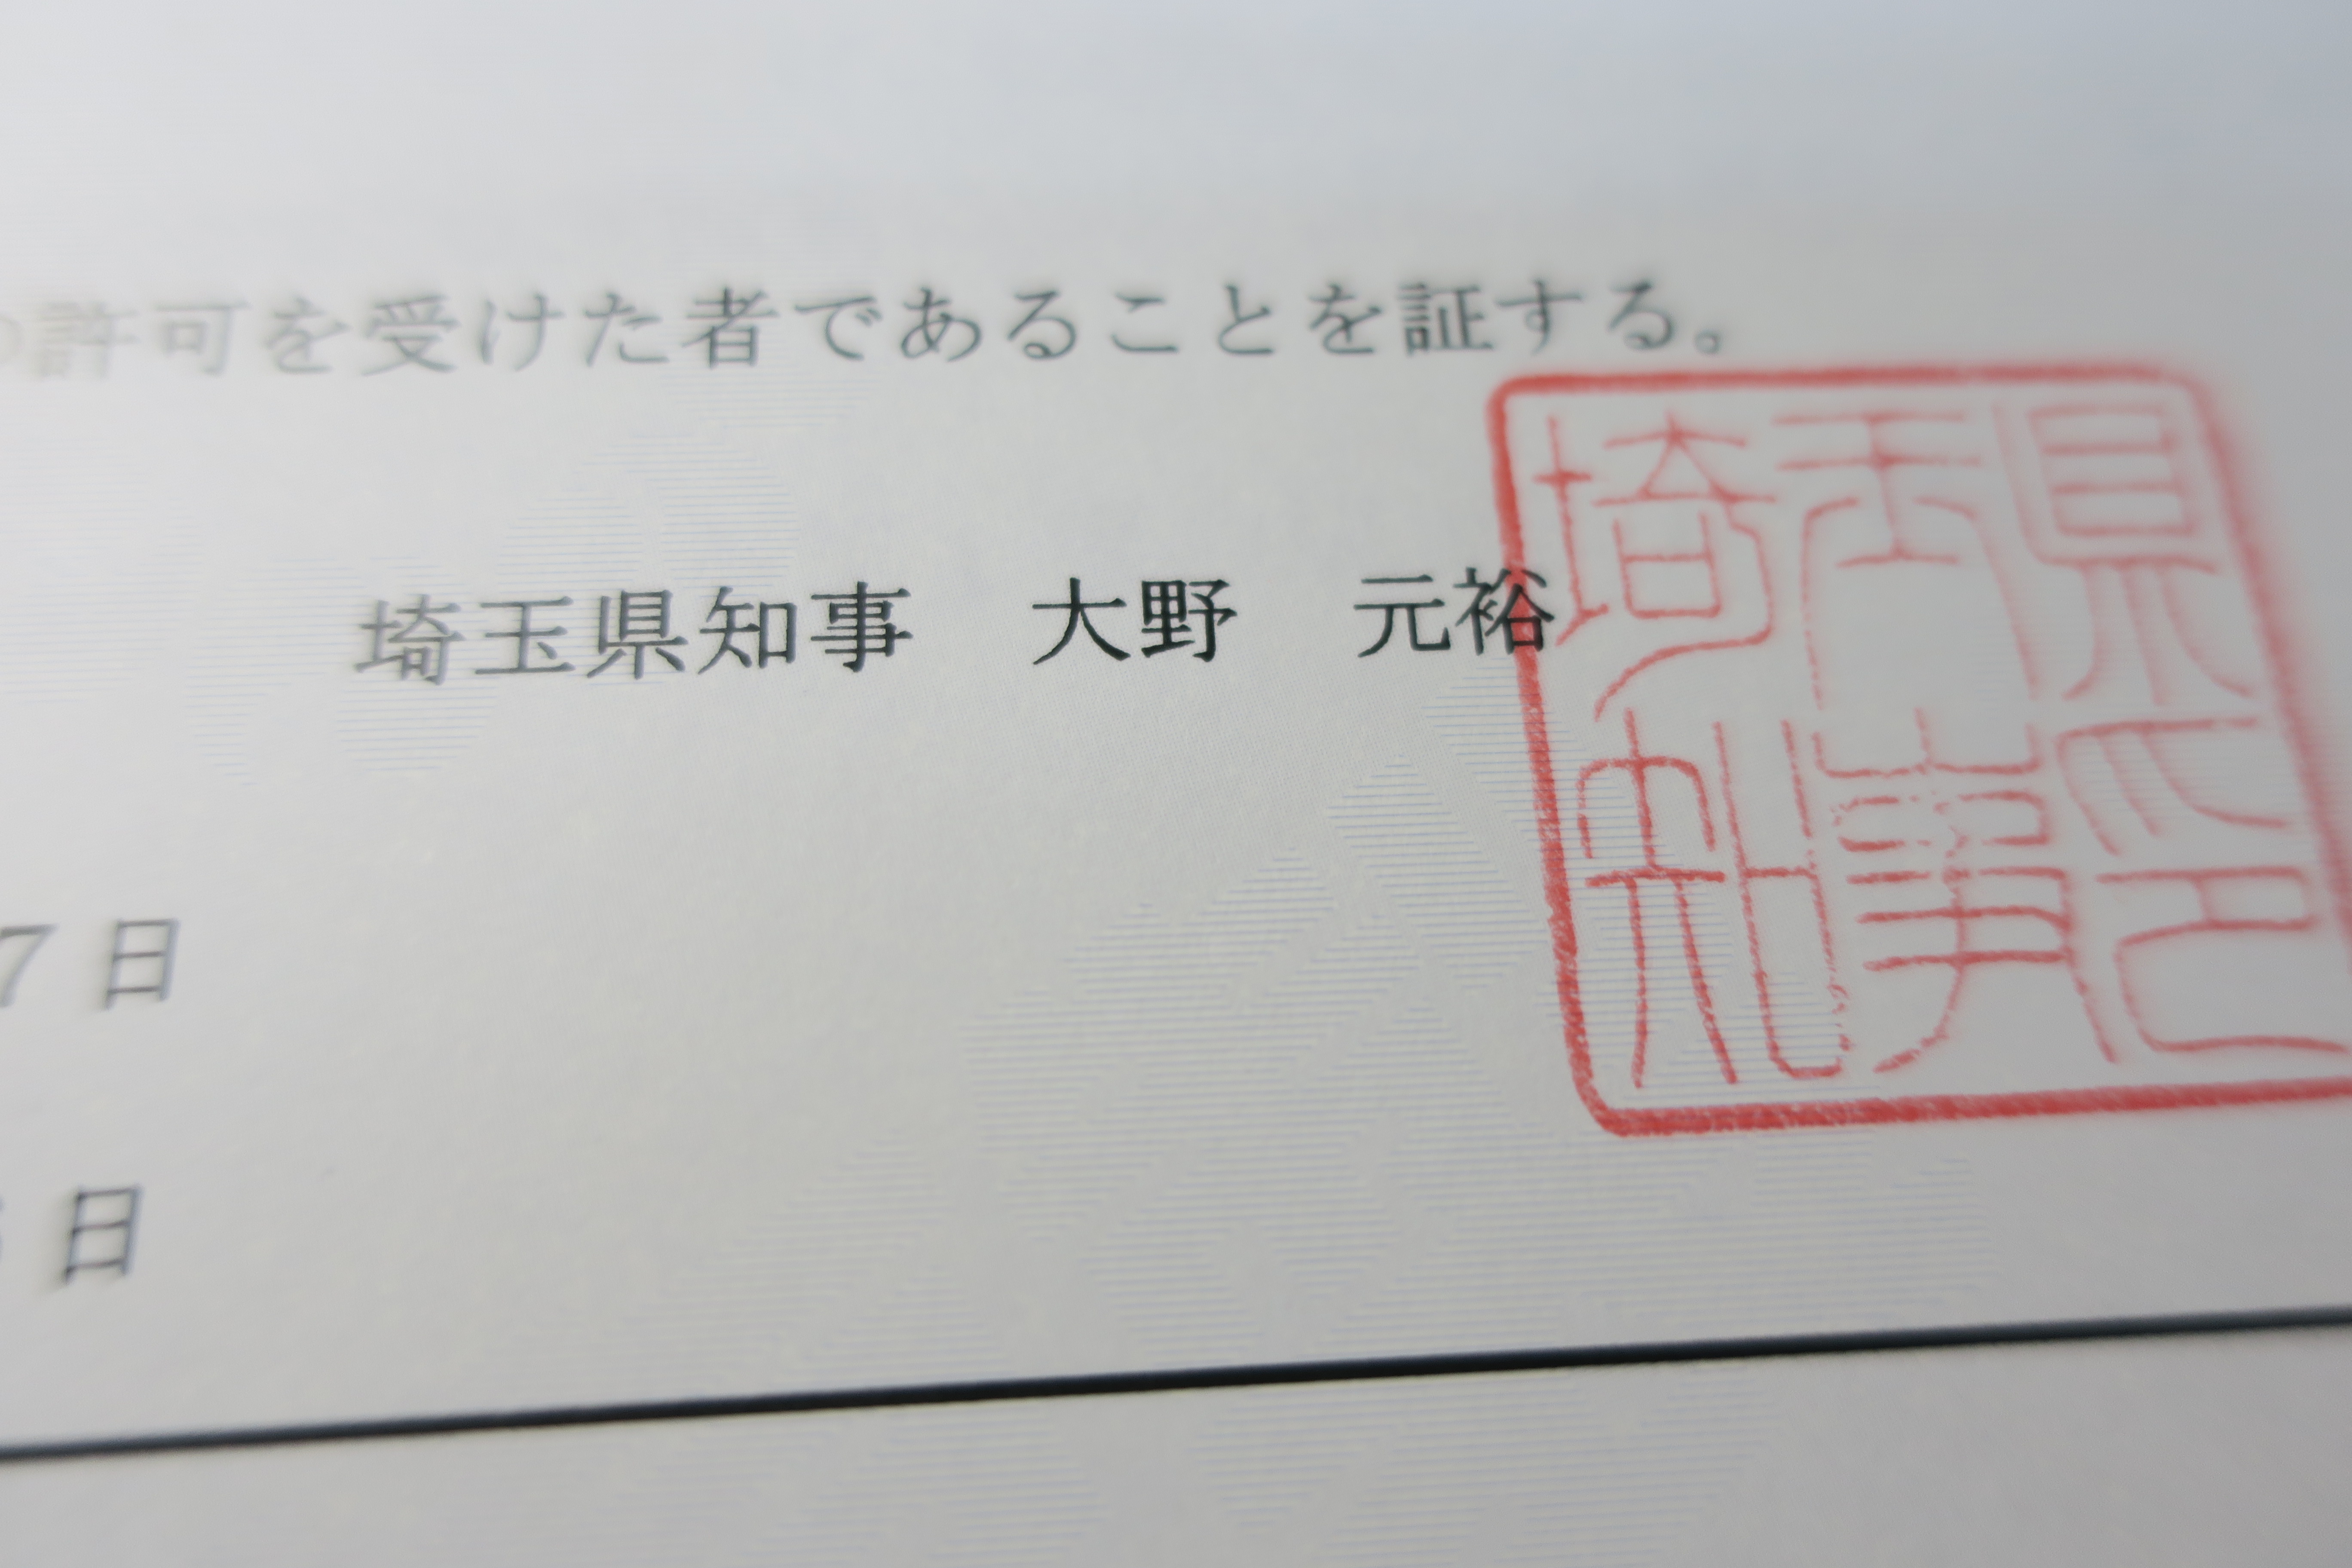 許可を受けた者であることを証する。
埼玉県知事　大野　元裕
埼玉県
知事印
7日
日